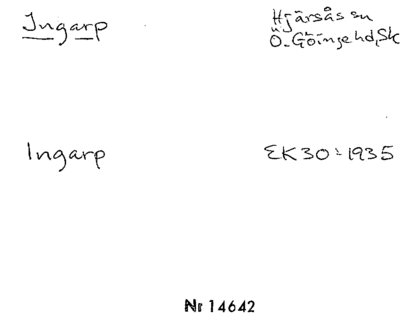 Ingarp
Hjärsås sn
Ö. Göinge hd, Sk
Ingarp
EK30: 1935
Nr 14642